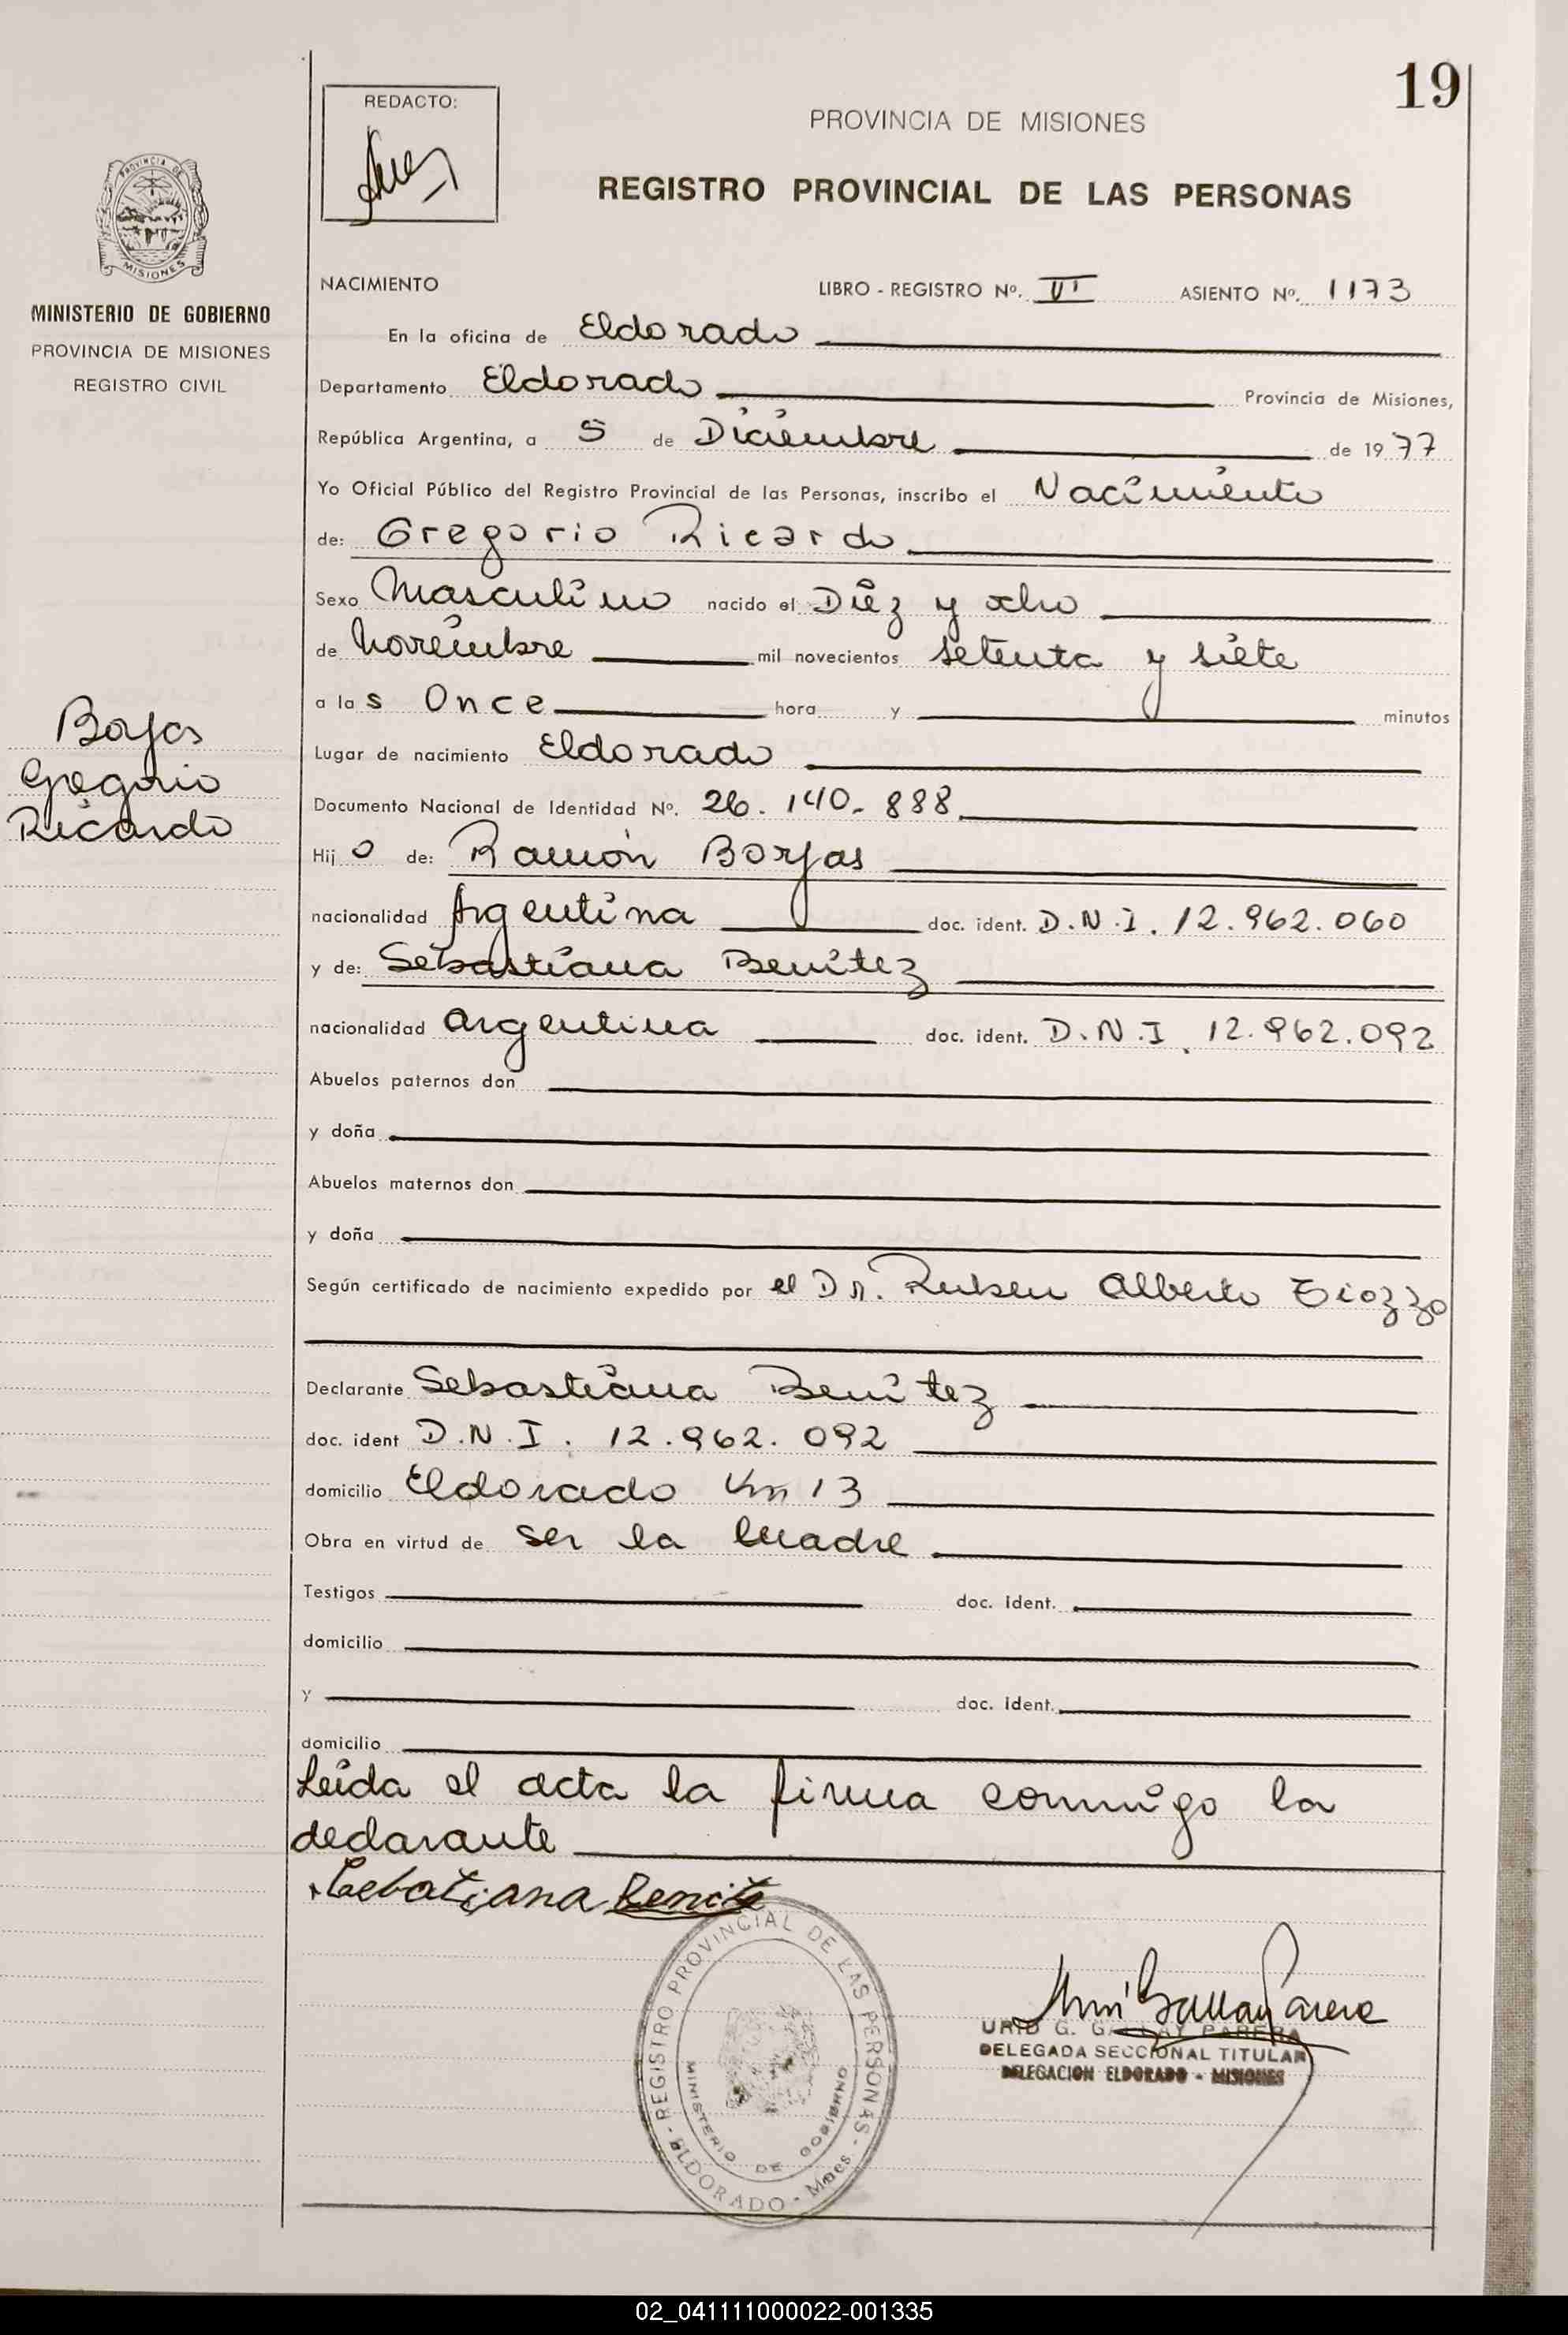 19
REDACTO:
PROVINCIA DE MISIONES
REGISTRO PROVINCIAL DE LAS PERSONAS
PROVINCIA DE
MISIONES
MINISTERIO DE GOBIERNO
PROVINCIA DE MISIONES
REGISTRO CIVIL
NACIMIENTO LIBRO - REGISTRO Nº. VI ASIENTO Nº. 1173
En la oficina de Eldorado
Departamento Eldorado Provincia de Misiones,
República Argentina, a 5 de Diciembre de 1977
Yo Oficial Público del Registro Provincial de las Personas, inscribo el Nacimiento
de: Gregorio Ricardo
Sexo Masculino nacido el Diez y ocho
de noviembre mil novecientos setenta y siete
a las Once hora y minutos
Borjas
Gregorio
Ricardo
Lugar de nacimiento Eldorado
Documento Nacional de Identidad Nº. 26.140.888
Hijo de: Ramón Borjas
nacionalidad Argentina doc. ident. D.N.I. 12.962.060
y de: Sebastiana Benítez
nacionalidad argentina doc. ident. D.N.I. 12.962.092
Abuelos paternos don
y doña
Abuelos maternos don
y doña
Según certificado de nacimiento expedido por el Dr. Ruben Alberto
Declarante Sebastiana Benítez
doc. ident D.N.I. 12.962.092
domicilio Eldorado Km 13
Obra en virtud de ser la madre
Testigos doc. ident.
domicilio
y doc. ident.
domicilio
Leída el acta la firma conmigo la
declarante
Sebatiana Benite
REGISTRO PROVINCIAL DE LAS PERSONAS - ELDORADO - Mnes.
MINISTERIO DE GOBIERNO
DELEGADA SECCIONAL TITULAR
DELEGACION ELDORADO - MISIONES
02_041111000022-001335